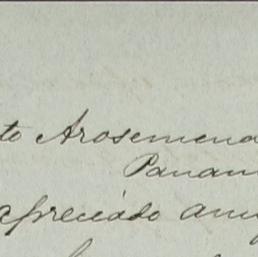 to Arosemena
Panam
apreciado ami